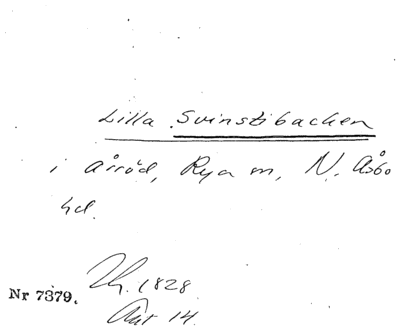 Lilla Svinstibacken
i Årröd, Rya sn, N. Åsbo
hd.
Nr 7379.
1828
Akt 14.